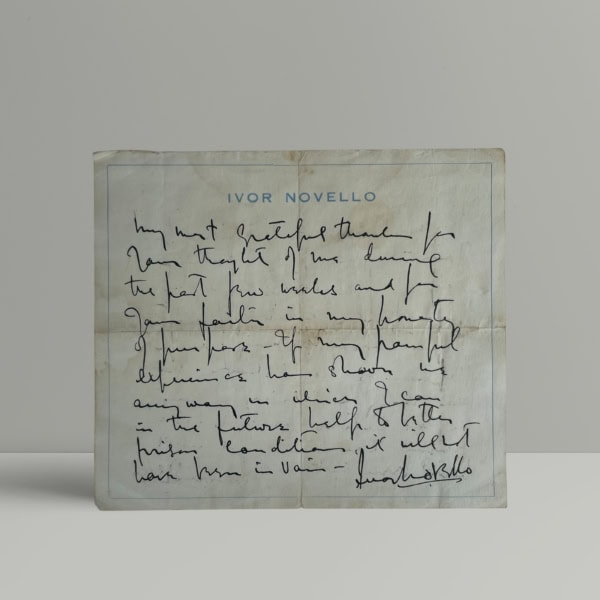 IVOR NOVELLO
My most grateful thanks for
your thought of me during
the past few weeks and for
your faith in my honesty
of purpose - If my painful
experience has shown me
any way in which I can
in the future help to better
prison conditions it will not
have been in vain -
Ivor Novello